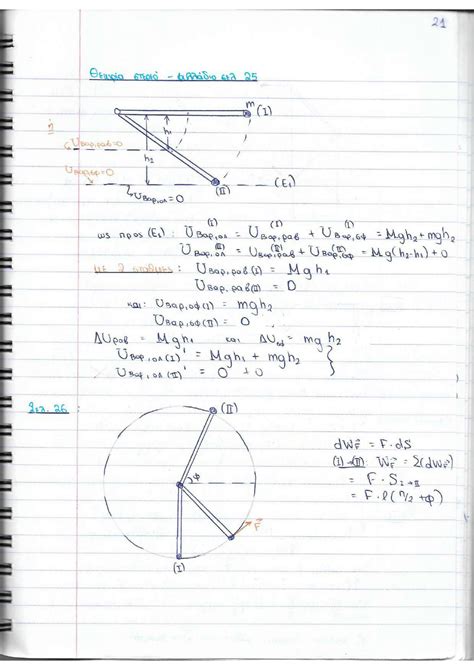 21
Θεωρία στερεό - φυλλάδιο σελ 25
m
(I)
h₁
ή
U_βαρ,ραβ=0
h₂
U_βαρ,σφ=0
(II)
(E₁)
U_βαρ,ολ=0
ως προς (E₁): U_βαρ,ολ^(I) = U_βαρ,ραβ^(I) + U_βαρ,σφ^(I) = Mgh₂+mgh₂
U_βαρ,ολ^(II) = U_βαρ,ραβ^(II) + U_βαρ,σφ^(II) = Mg(h₂-h₁)+0
με 2 στάθμες: U_βαρ,ραβ(I) = Mgh₁
U_βαρ,ραβ(II) = 0
και: U_βαρ,σφ(I) = mgh₂
U_βαρ,σφ(II) = 0
ΔU_ραβ = Mgh₁ και ΔU_σφ = mgh₂
U_βαρ,ολ(I)' = Mgh₁ + mgh₂
U_βαρ,ολ(II)' = 0 + 0
Σελ. 26 :
(II)
φ
F⃗
(I)
dW_F⃗ = F·dS
(I)→(II): W_F⃗ = Σ(dW_F⃗)
= F·S_I→II
= F·l(π/2 + φ)